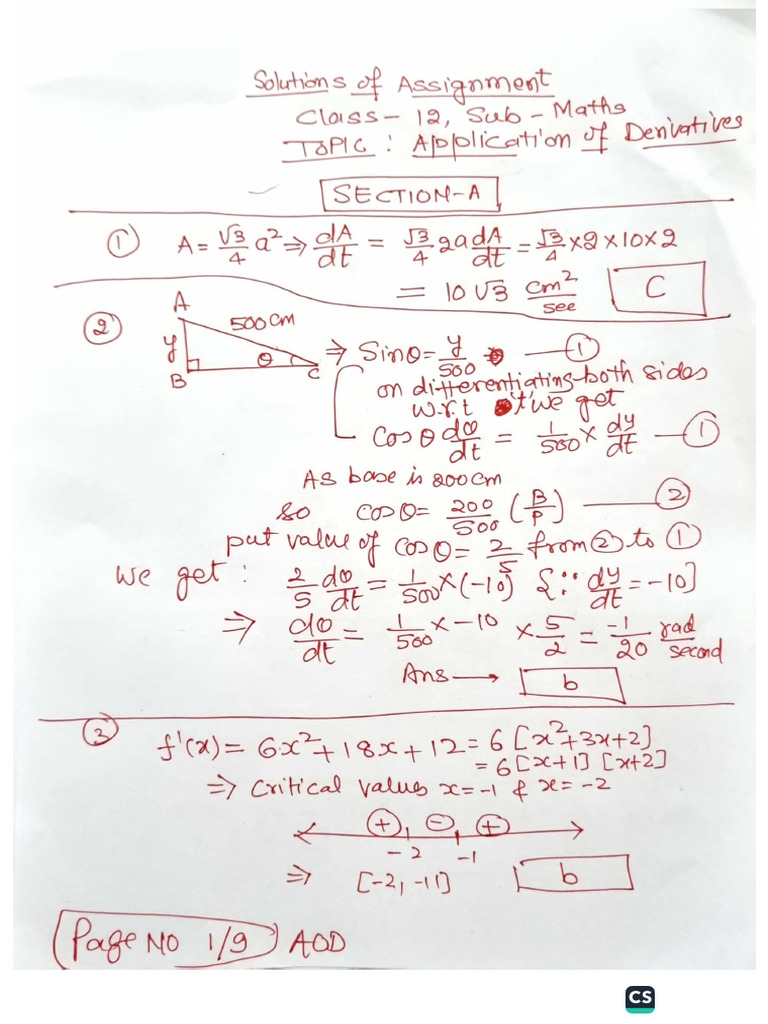 Solutions of Assignment
Class- 12, Sub - Maths
TOPIC : Application of Derivatives
SECTION-A
① A = √3/4 a² ⇒ dA/dt = √3/4 2a dA/dt = √3/4 × 2 × 10 × 2
= 10√3 cm²/sec C
②
A
500cm
y
θ
B
C
⇒ Sinθ = y/500 —①
on differentiating both sides
w.r.t 't' we get
Cosθ dθ/dt = 1/500 × dy/dt —①
As base is 200cm
so Cosθ = 200/500 (B/P) —②
put value of Cosθ = 2/5 from ② to ①
we get : 2/5 dθ/dt = 1/500 × (-10) {∵ dy/dt = -10]
⇒ dθ/dt = 1/500 × -10 × 5/2 = -1/20 rad/second
Ans → b
③ f'(x) = 6x² + 18x + 12 = 6[x²+3x+2]
= 6[x+1] [x+2]
⇒ critical values x=-1 & x=-2
+ - +
-2 -1
⇒ [-2, -1] b
Page NO 1/9 AOD
CS